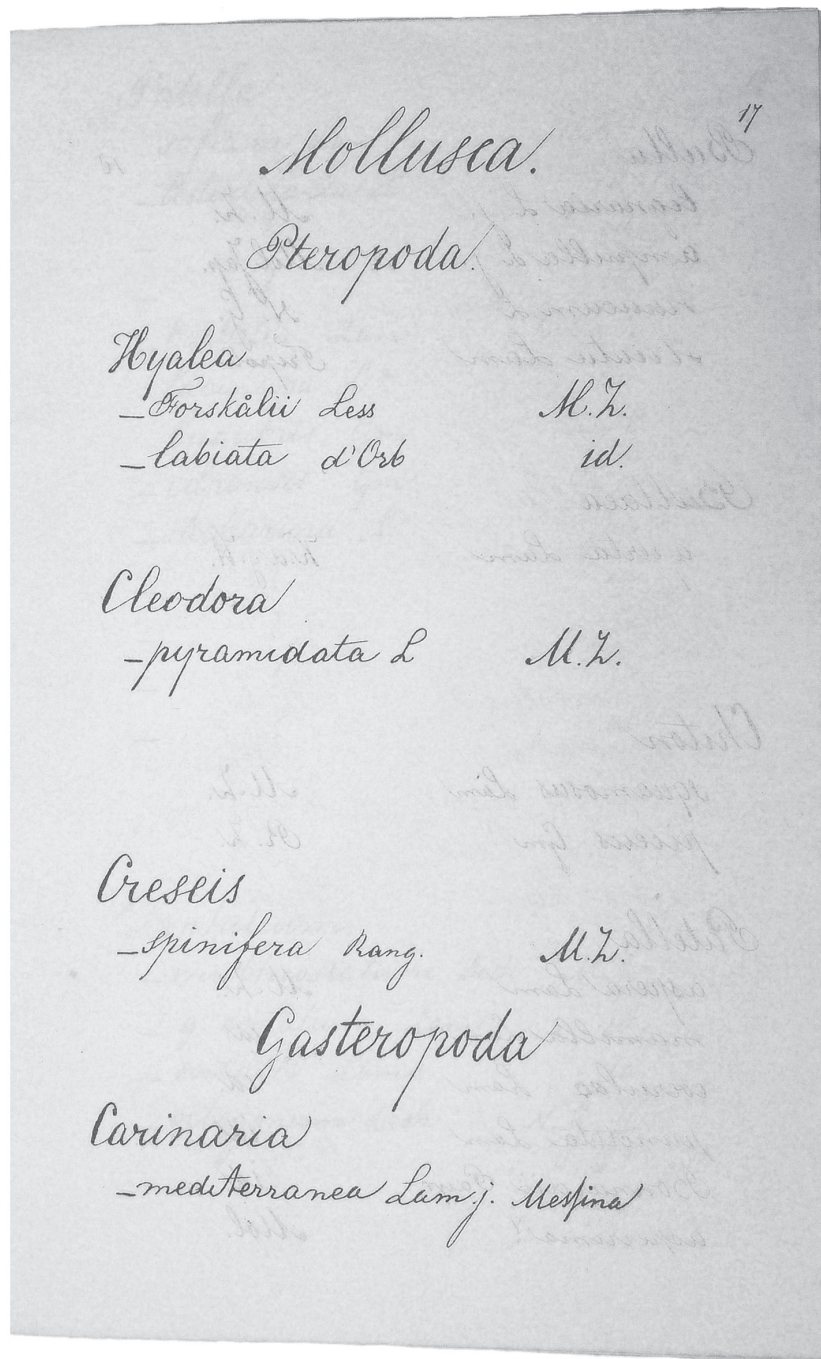 17
Mollusca.
Pteropoda.
Hyalea
– Forskålii Less M.Z.
– labiata d'Orb id.
Cleodora
– pyramidata L M.Z.
Creseis
– spinifera Rang. M.Z.
Gasteropoda
Carinaria
– mediterranea Lam. j. Messina